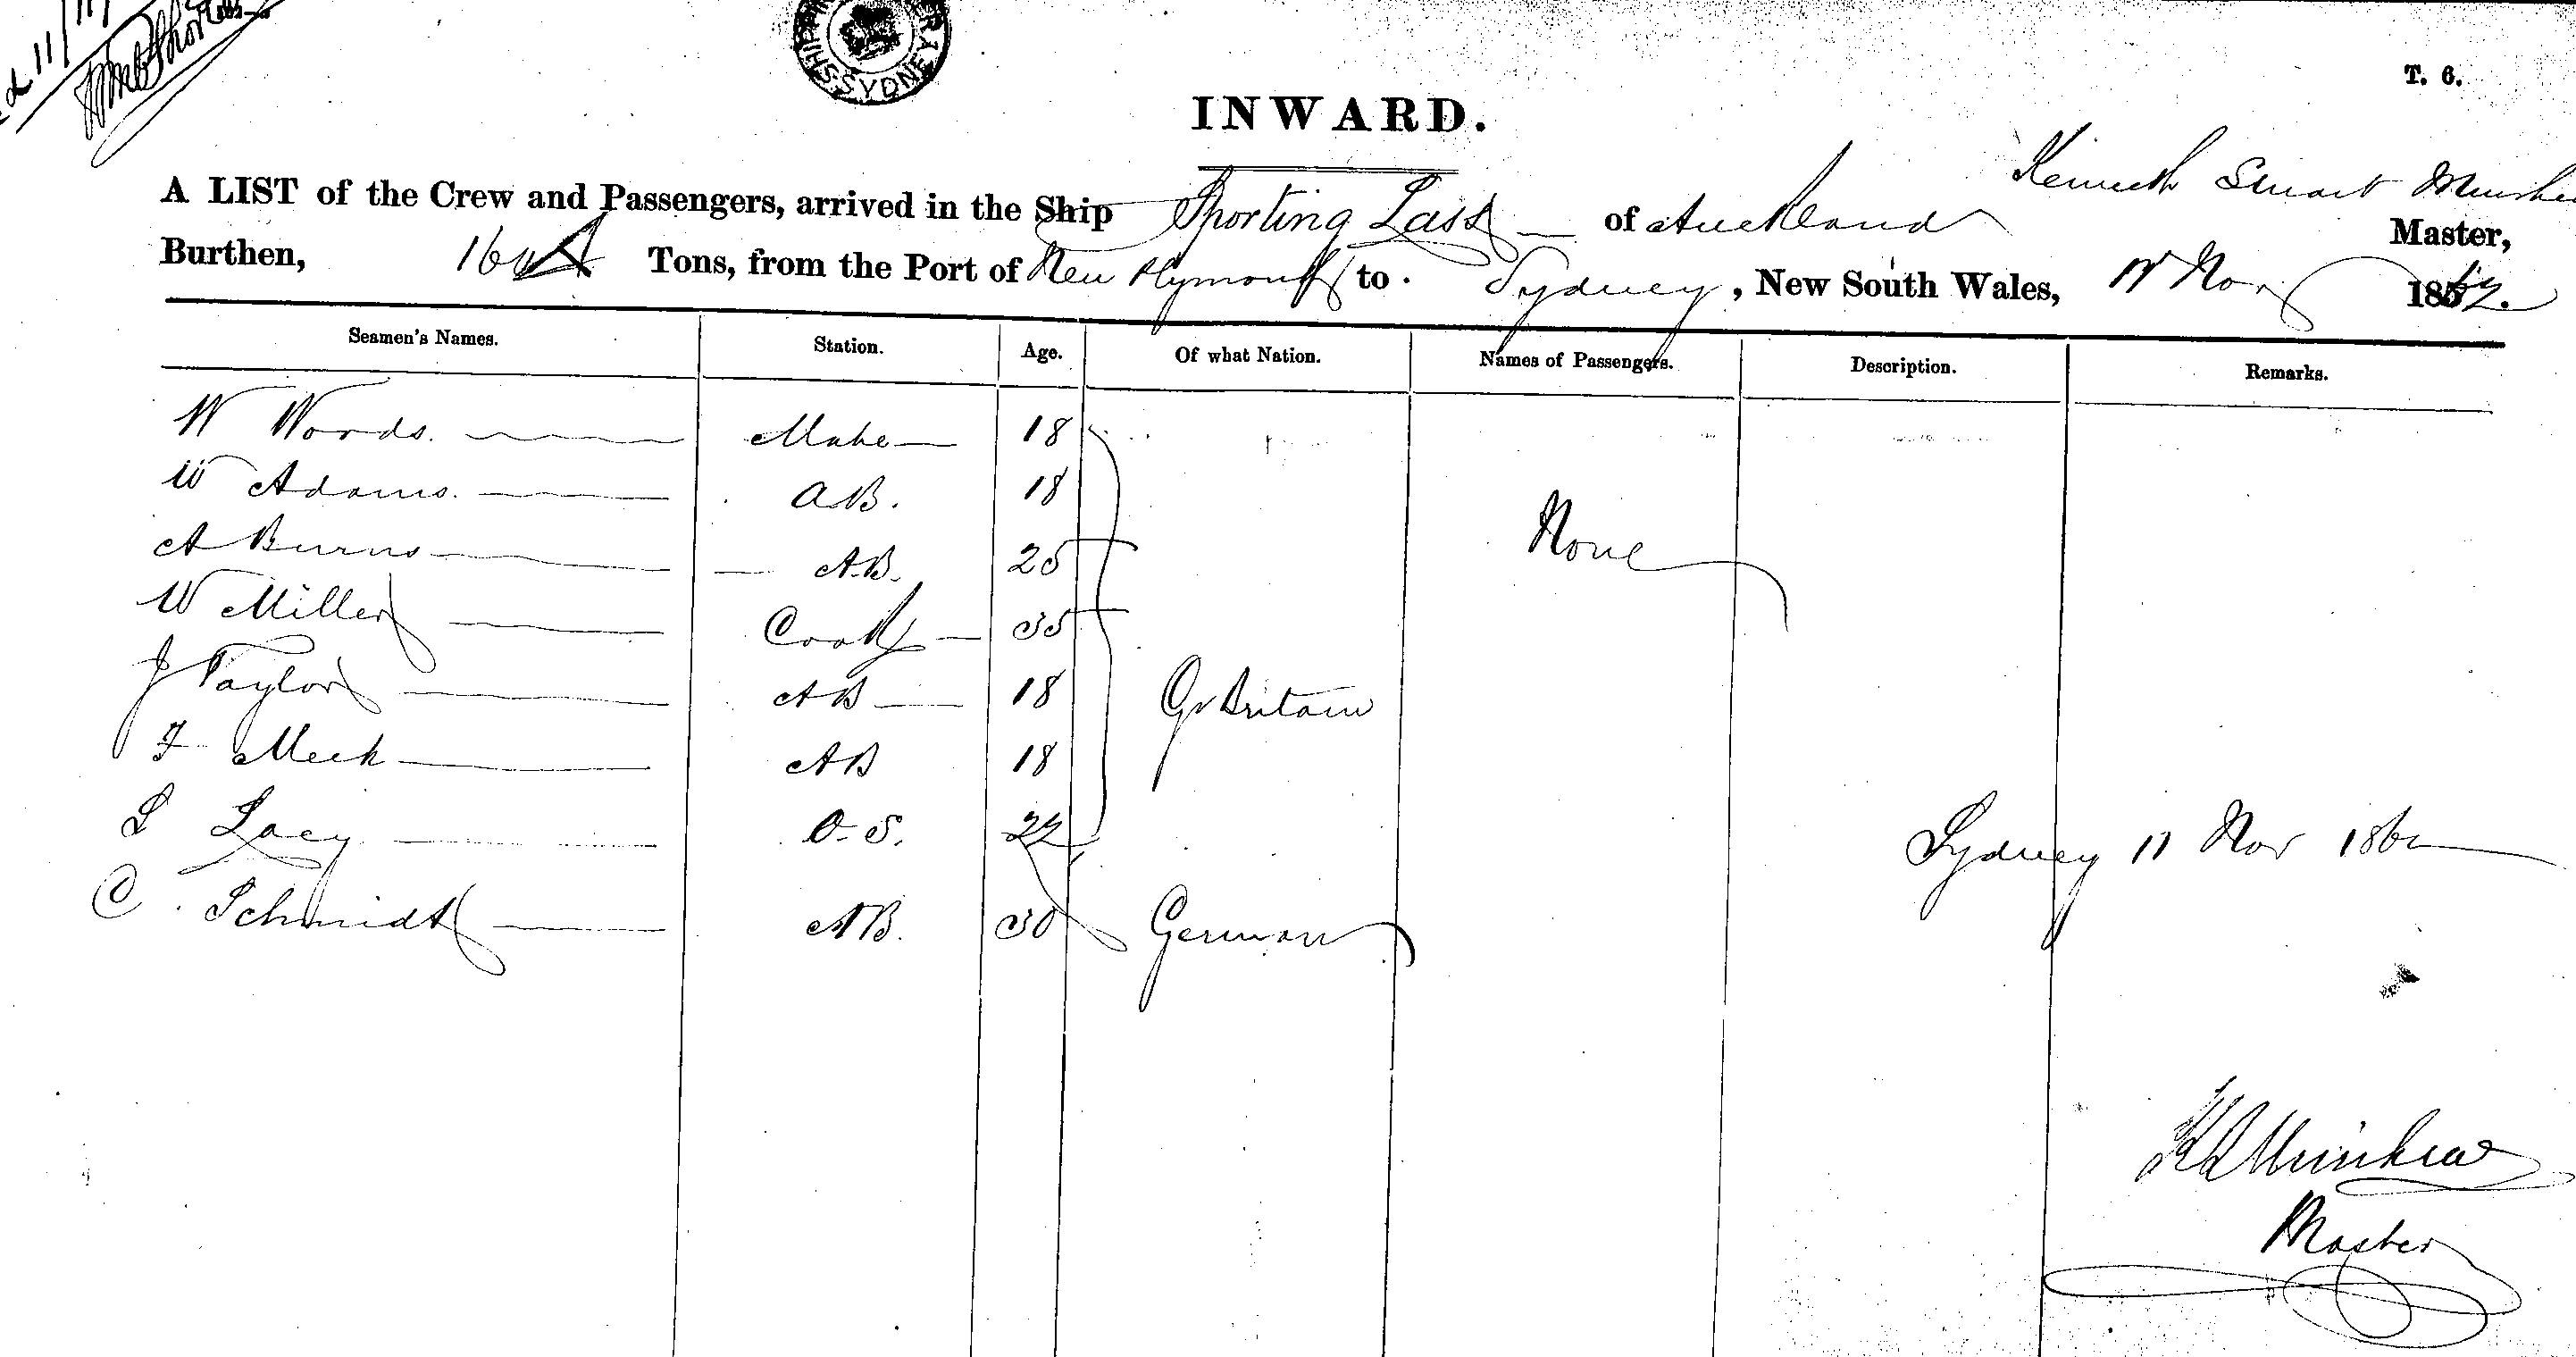 SYDNEY
T. 6.
INWARD.
Kenneth Stuart
A LIST of the Crew and Passengers, arrived in the Ship Sporting Lass of Auckland Master,
Burthen, Tons, from the Port of New Plymouth to Sydney, New South Wales, 11 Nov 1862.
Seamen's Names. Station. Age. Of what Nation. Names of Passengers. Description. Remarks.
W Woods. Mate 18
W Adams. AB. 18
A Burns A.B. 25 None
W Miller Cook 35
J Taylor AB 18 Gr Britain
F Meek AB 18
L Lacy O.S. 22 Sydney 11 Nov 1862
C. Schmidt AB. 30 German
Master